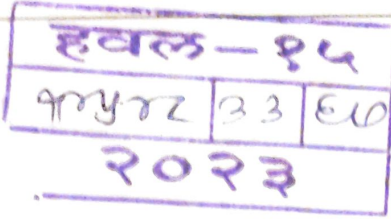 हवल - १५
३३ ६७
२०२३